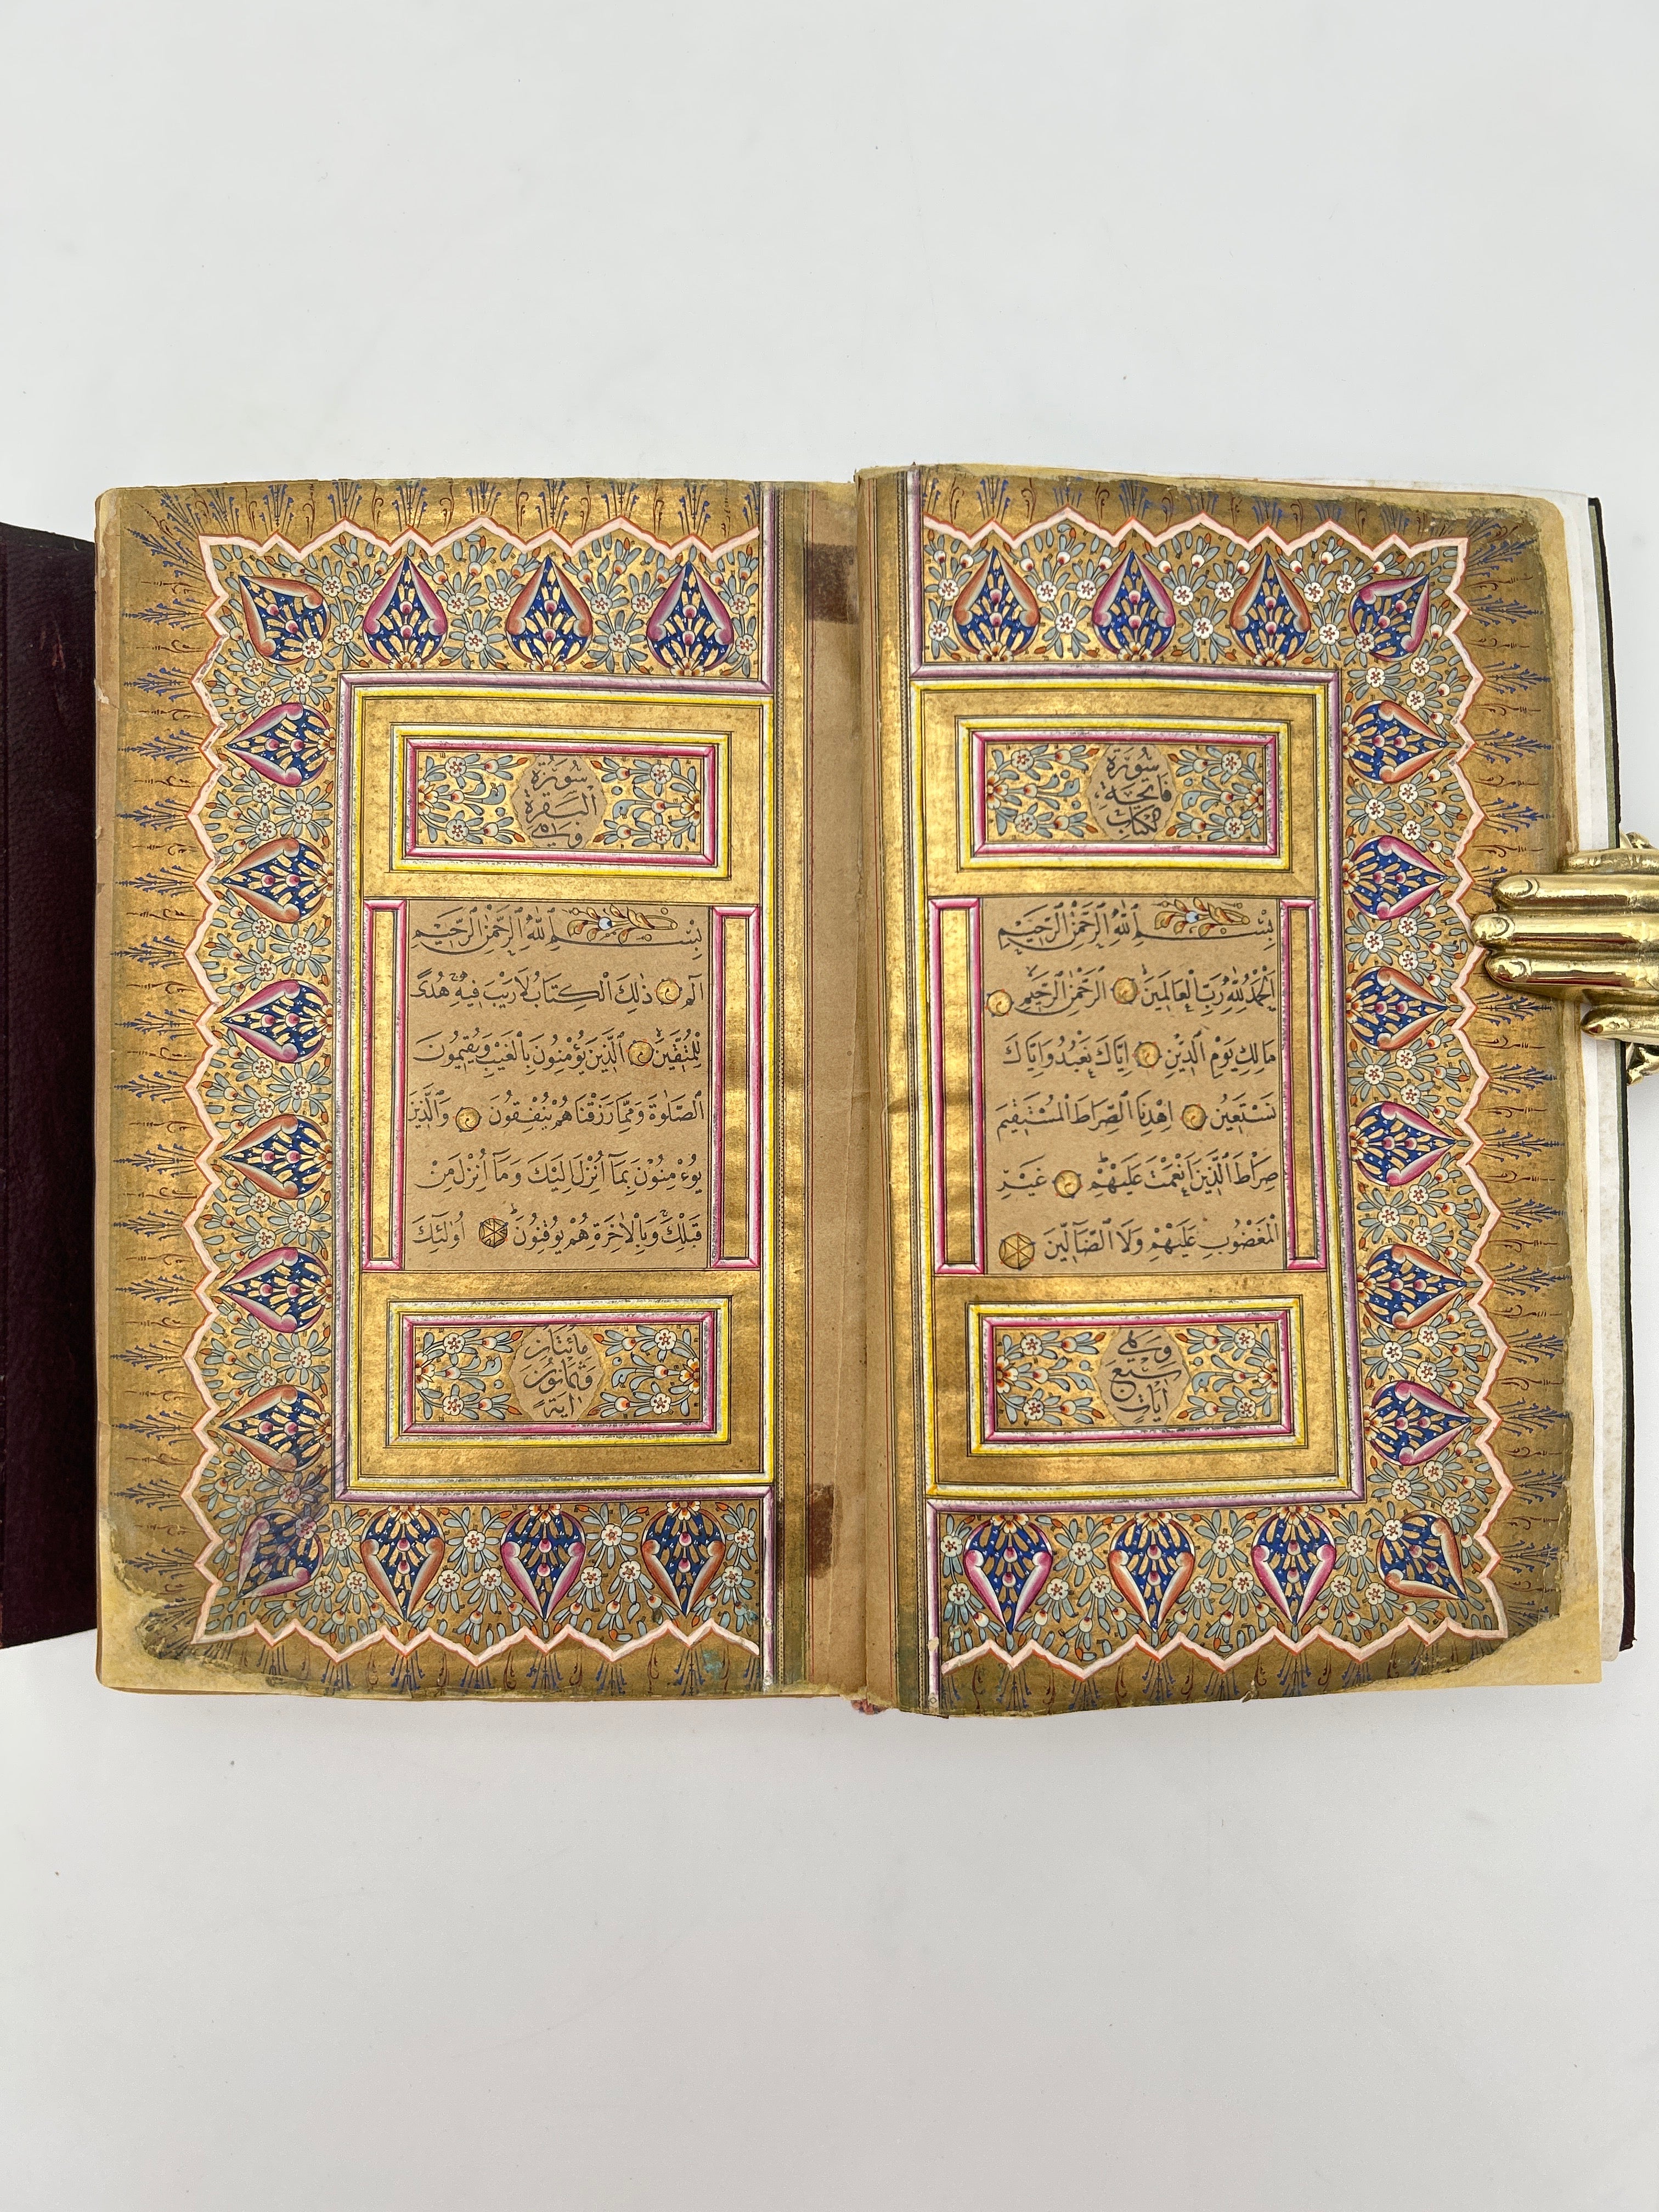 سُورَةُ
فَاتِحَةِ
الْكِتَابِ
بِسْمِ اللّٰهِ الرَّحْمٰنِ الرَّحِيمِ
اَلْحَمْدُ لِلّٰهِ رَبِّ الْعَالَمِينَ الرَّحْمٰنِ الرَّحِيمِ
مَالِكِ يَوْمِ الدِّينِ اِيَّاكَ نَعْبُدُ وَاِيَّاكَ
نَسْتَعِينُ اِهْدِنَا الصِّرَاطَ الْمُسْتَقِيمَ
صِرَاطَ الَّذِينَ اَنْعَمْتَ عَلَيْهِمْ غَيْرِ
الْمَغْضُوبِ عَلَيْهِمْ وَلَا الضَّآلِّينَ
وَهِيَ
سَبْعُ
اٰيَاتٍ
سُورَةُ
الْبَقَرَةِ
وَهِيَ
بِسْمِ اللّٰهِ الرَّحْمٰنِ الرَّحِيمِ
الٓمٓ ذٰلِكَ الْكِتَابُ لَا رَيْبَ فِيهِ هُدًى
لِلْمُتَّقِينَ اَلَّذِينَ يُؤْمِنُونَ بِالْغَيْبِ وَيُقِيمُونَ
الصَّلٰوةَ وَمِمَّا رَزَقْنَاهُمْ يُنْفِقُونَ وَالَّذِينَ
يُؤْمِنُونَ بِمَآ اُنْزِلَ اِلَيْكَ وَمَآ اُنْزِلَ مِنْ
قَبْلِكَ وَبِالْاٰخِرَةِ هُمْ يُوقِنُونَ اُولٰٓئِكَ
مِائَتَانِ
وَثَمَانُونَ
اٰيَةً